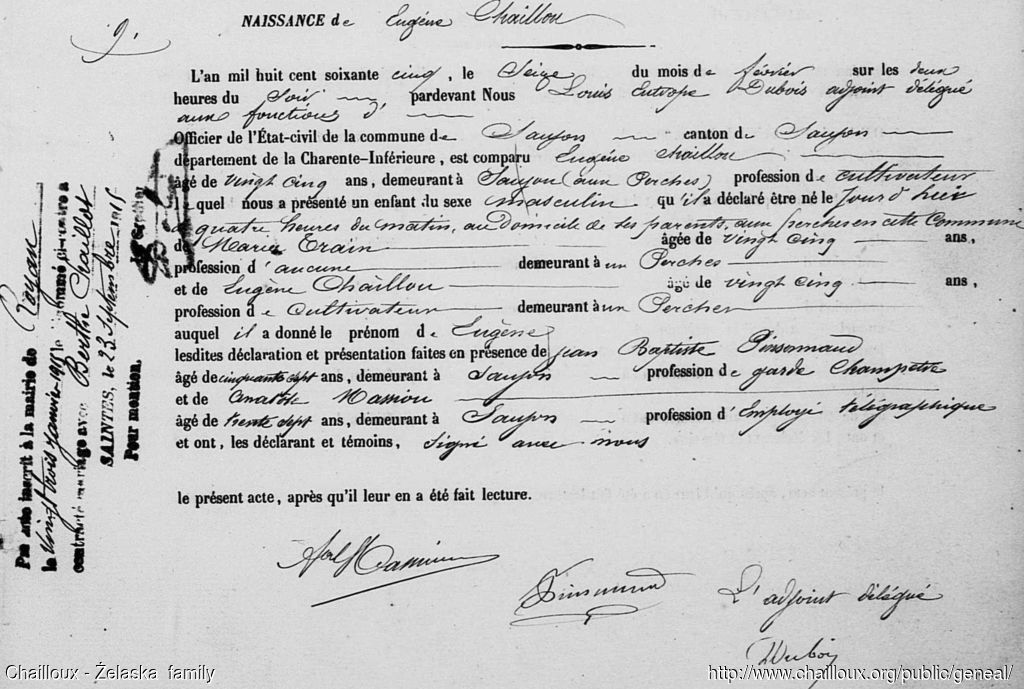 9.
NAISSANCE de Eugène Chaillou
L'an mil huit cent soixante cinq, le Seize du mois de février sur les deux
heures du Soir, pardevant Nous Louis Eutrope Dubois adjoint délégué
aux fonctions d'
Officier de l'État-civil de la commune de Saujon canton de Saujon
département de la Charente-Inférieure, est comparu Eugène Chaillou
âgé de vingt cinq ans, demeurant à Saujon (aux Perches) profession de cultivateur
quel nous a présenté un enfant du sexe masculin qu'il a déclaré être né le Jour d'huit
à quatre heures du matin, au Domicile de ses parents, aux perches en cette Commune
de Marie Train âgée de vingt cinq ans,
profession d'aucune demeurant à ux Perches
et de Eugène Chaillou âgé de vingt cinq ans,
profession de Cultivateur demeurant à ux Perches
auquel il a donné le prénom d e Eugène
lesdites déclaration et présentation faites en présence de Jean Baptiste Pinsonnaud
âgé de cinquante sept ans, demeurant à Saujon profession de garde Champetre
et de Massiou
âgé de trente sept ans, demeurant à Saujon profession d'Employé télégraphique
et ont, les déclarant et témoins, signé avec nous
le présent acte, après qu'il leur en a été fait lecture.
Massiou
Pinsonnaud
L'adjoint délégué
Dubois
Par acte inscrit à la mairie de Royan
le vingt trois Janvier 1915 le nommé ci-contre a
contracté mariage avec Berthe Chaillot
SAINTES, le 23 Septembre 1915
Pour mention.
Le greffier
Chailloux - Żelaska family
http://www.chailloux.org/public/geneal/